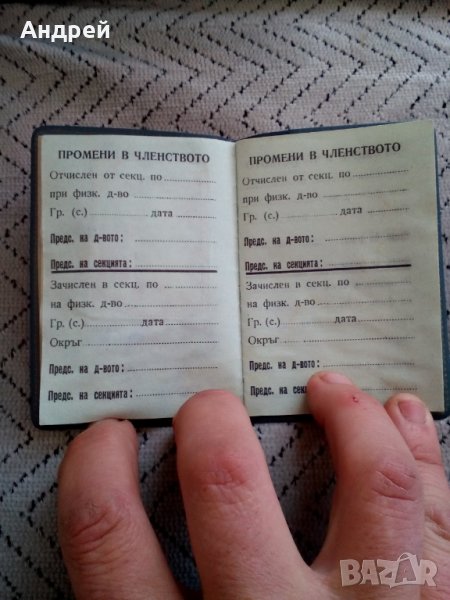 Андрей
ПРОМЕНИ В ЧЛЕНСТВОТО
Отчислен от секц. по
при физк. д-во
Гр. (с.) дата
Предс. на д-вото:
Предс. на секцията:
Зачислен в секц. по
на физк. д-во
Гр. (с.) дата
Окръг
Предс. на д-вото:
Предс. на секцията:
ПРОМЕНИ В ЧЛЕНСТВОТО
Отчислен от секц. по
при физк. д-во
Гр. (с.) дата
Предс. на д-вото:
Предс. на секцията:
Зачислен в секц. по
на физк. д-во
Гр. (с.) дата
Окръг
Предс. на д-вото:
Предс. на
BAZAR